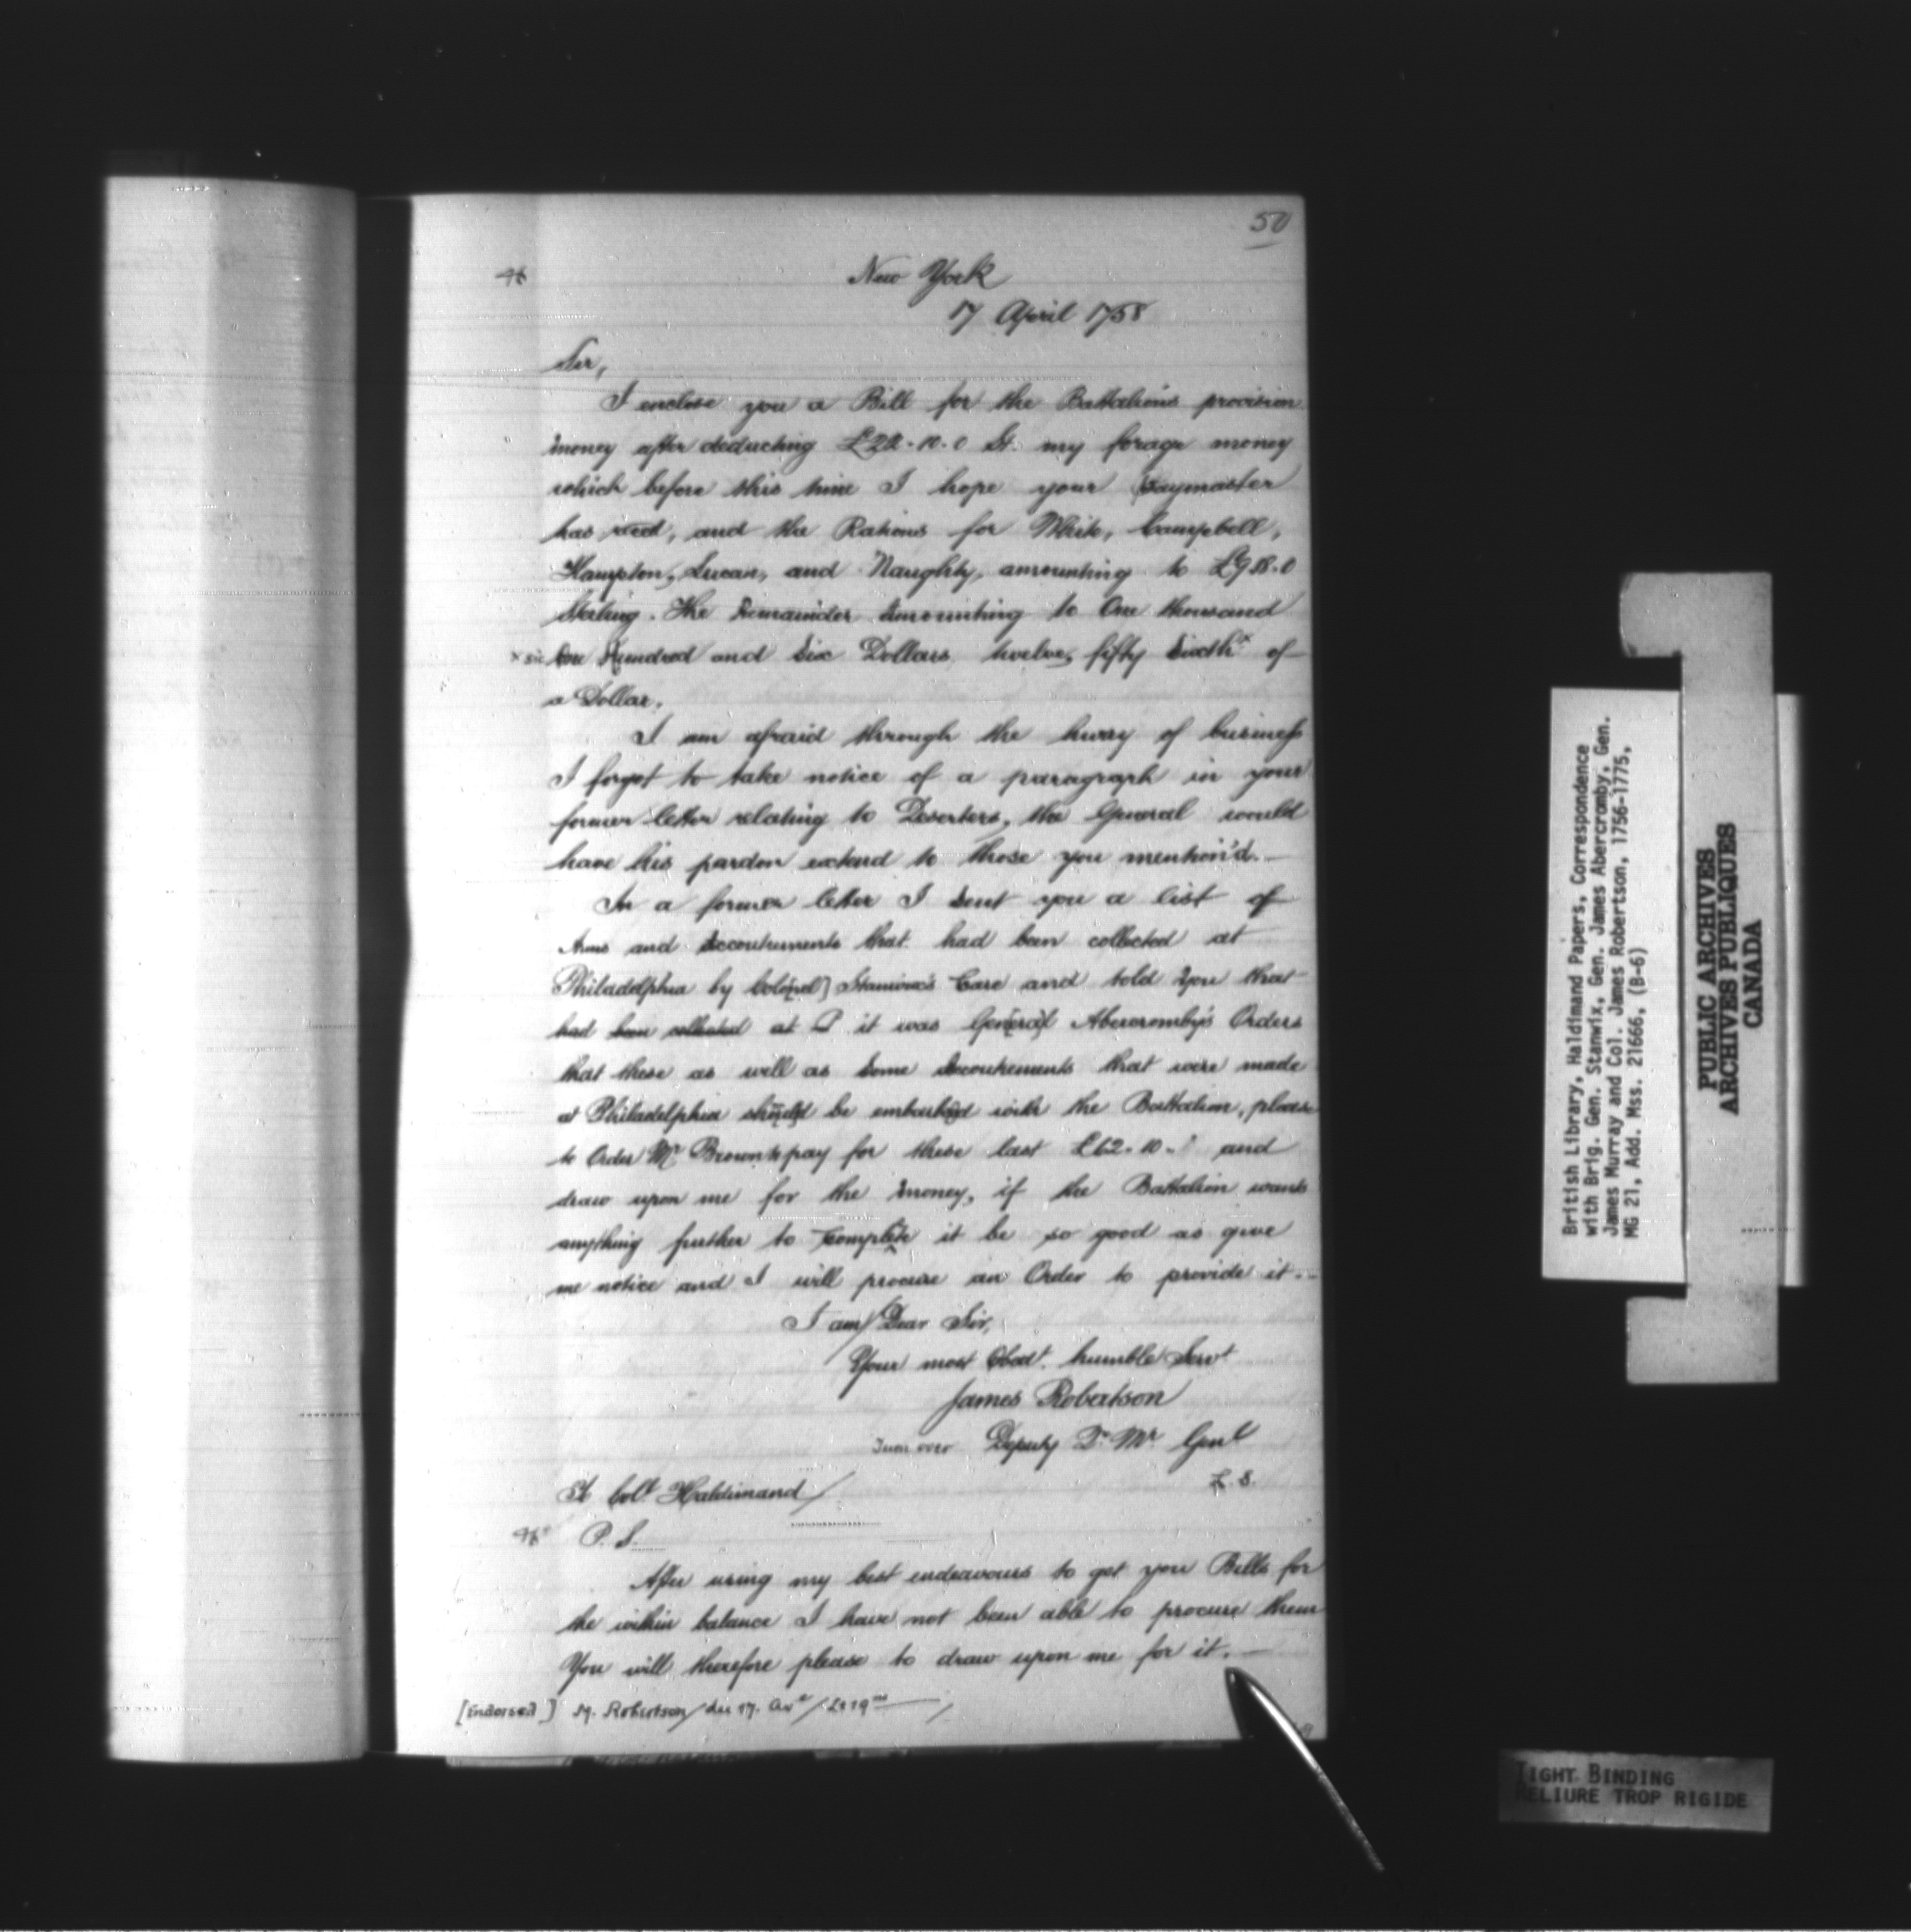 50
New York
17 April 1758
Sir,
I enclose you a Bill for the Battalions provision
money after deducting £22-10-0 St. my forage money
which before this time I hope your Paymaster
has reed, and the Rations for White, Campbell,
Hampton, Lucan, and Naughty, amounting to £9.58.0
Sterling. The Remainder Amounting to One thousand
x sic One Hundred and Six Dollars twelve, fifty Sixth x of
a Dollar.
I am afraid through the hurry of business
I forgot to take notice of a paragraph in your
former letter relating to Deserters, the General would
have his pardon extend to those you mention'd.
In a former letter I Sent you a list of
Arms and Accoutrements that had been collected at
Philadelphia by Colo[nel] Stanwix's Care and told you that
had been collected at P it was Gen[era]l Abercromby's Orders
that these as well as Some Accoutrements that were made
at Philadelphia should be embarked with the Battalion, please
to Order Mr Brown to pay for these last £62-10- and
draw upon me for the Money, if the Battalion wants
anything further to Complete it be so good as give
me notice and I will procure an Order to provide it.
I am/Dear Sir,
Your most Obedt. humble Servt
James Robertson
Turn over Deputy Qr Mr Genl
L.S.
Colt Haldimand/
P.S.
After using my best endeavours to get you Bills for
the within balance I have not been able to procure them
You will therefore please to draw upon me for it.
[Endorsed] M. Robertson/du 17. Avl/ Le 19me
British Library, Haldimand Papers, Correspondence
with Brig. Gen. Stanwix, Gen. James Abercromby, Gen.
James Murray and Col. James Robertson, 1756-1775,
MG 21, Add. Mss. 21666, (B-6)
PUBLIC ARCHIVES
ARCHIVES PUBLIQUES
CANADA
TIGHT BINDING
RELIURE TROP RIGIDE